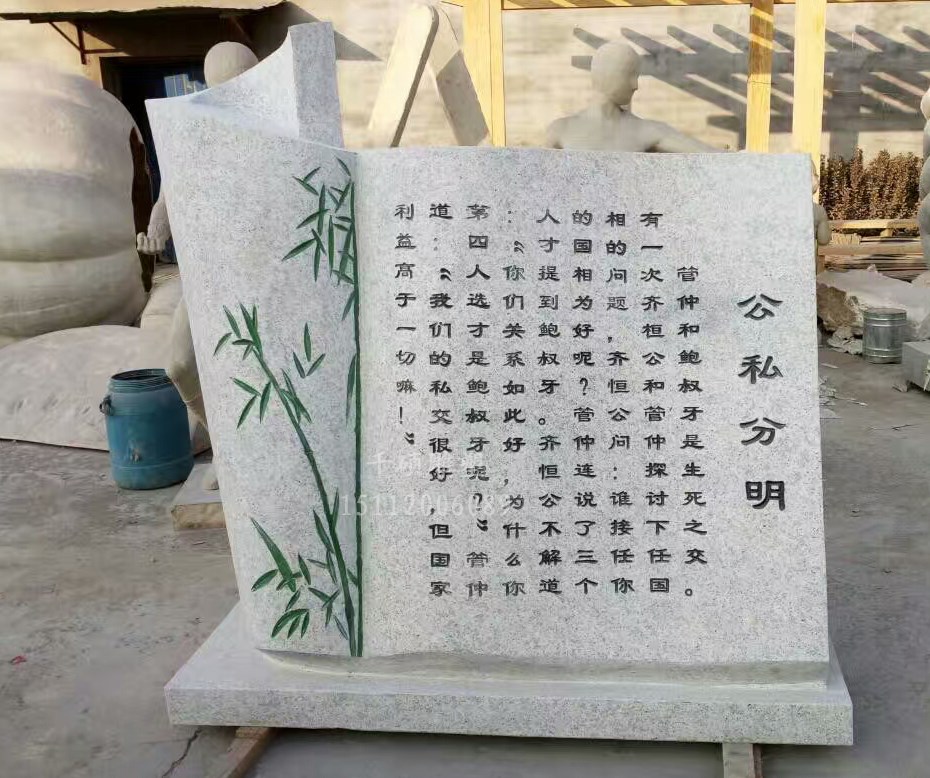 公私分明
管仲和鲍叔牙是生死之交。
有一次齐桓公和管仲探讨下任国
相的问题，齐恒公问：谁接任你
的国相为好呢？管仲连说了三个
人才提到鲍叔牙。齐恒公不解道
：“你们关系如此好，为什么你
第四人选才是鲍叔牙呢”管仲
道：“我们的私交很好 但国家
利益高于一切嘛！”